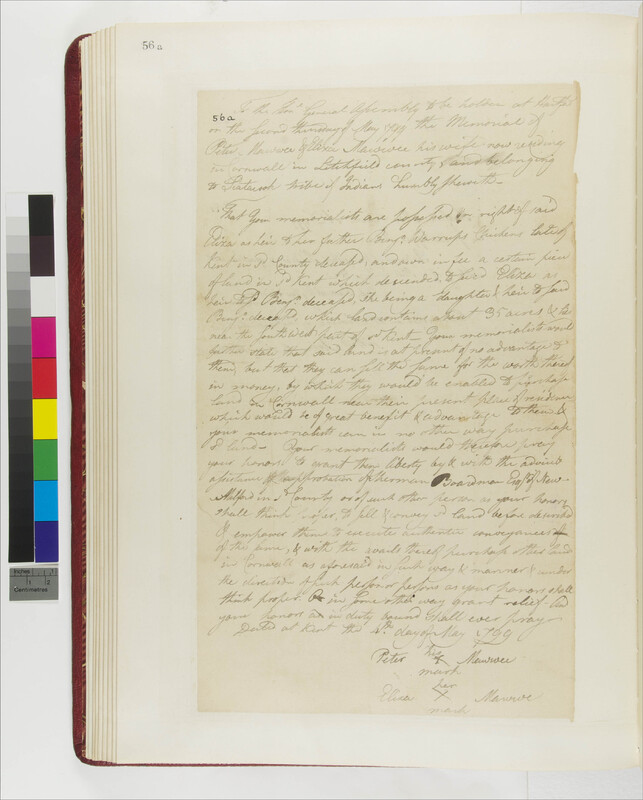 56 a
56a
To the Honl General Assembly to be holden at Hartfd
on the second thursday of May 1799 the Memorial of
Peter Mauwee & Eliza Mauwee his wife now residing
in Cornwall in Litchfield county & and belonging
to tribe of Indians humbly sheweth—
That Your memorialists are possessed in right of said
Eliza as heir to her father Benjn. Warrups Chickens late of
Kent in sd County deceasd, and in fee a certain piece
of land in sd Kent which descended, to said Eliza as
heir to sd Benjn. deceasd, she being a daughter & heir to said
Benjn. deceasd, which land contains about 35 acres &
near the Southwest part of sd Kent— Your memorialists would
further state that said land is at present of no advantage to
them, but that they can sell the same for the worth thereof
in money, by which they would be enabled to purchase
land in Cornwall near their present place of residence
which would be of great benefit & advantage to them &
your memorialists can in no other way purchase
sd land— Your memorialists would therefore pray
your honors to grant them liberty by & with the advice
assistance & approbation of Sherman Boardman Esqr. of New
Milford in sd County or of such other person as your honors
shall think proper, to sell & convey sd land before described
& empower them to execute authentic conveyances
of the same, & with the avails thereof purchase other land
in Cornwall as aforesaid in such way & manner & under
the direction of such person or persons as your honors shall
think proper Or in some other way grant relief And
your honors as in duty bound shall ever pray—
Dated at Kent the 4th day of May 1799
Peter his X Mauwee
mark
her
Eliza X Mauwee
mark
1 2
Centimetres